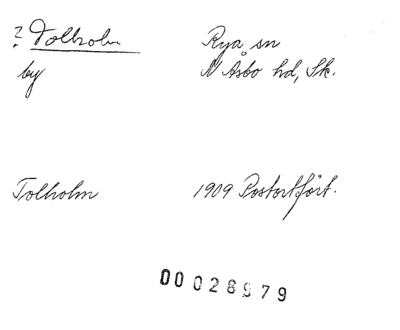 ? Tolholm Rya sn
by N Åsbo hd, Sk.
Tolholm 1909 Postortfört.
00028979